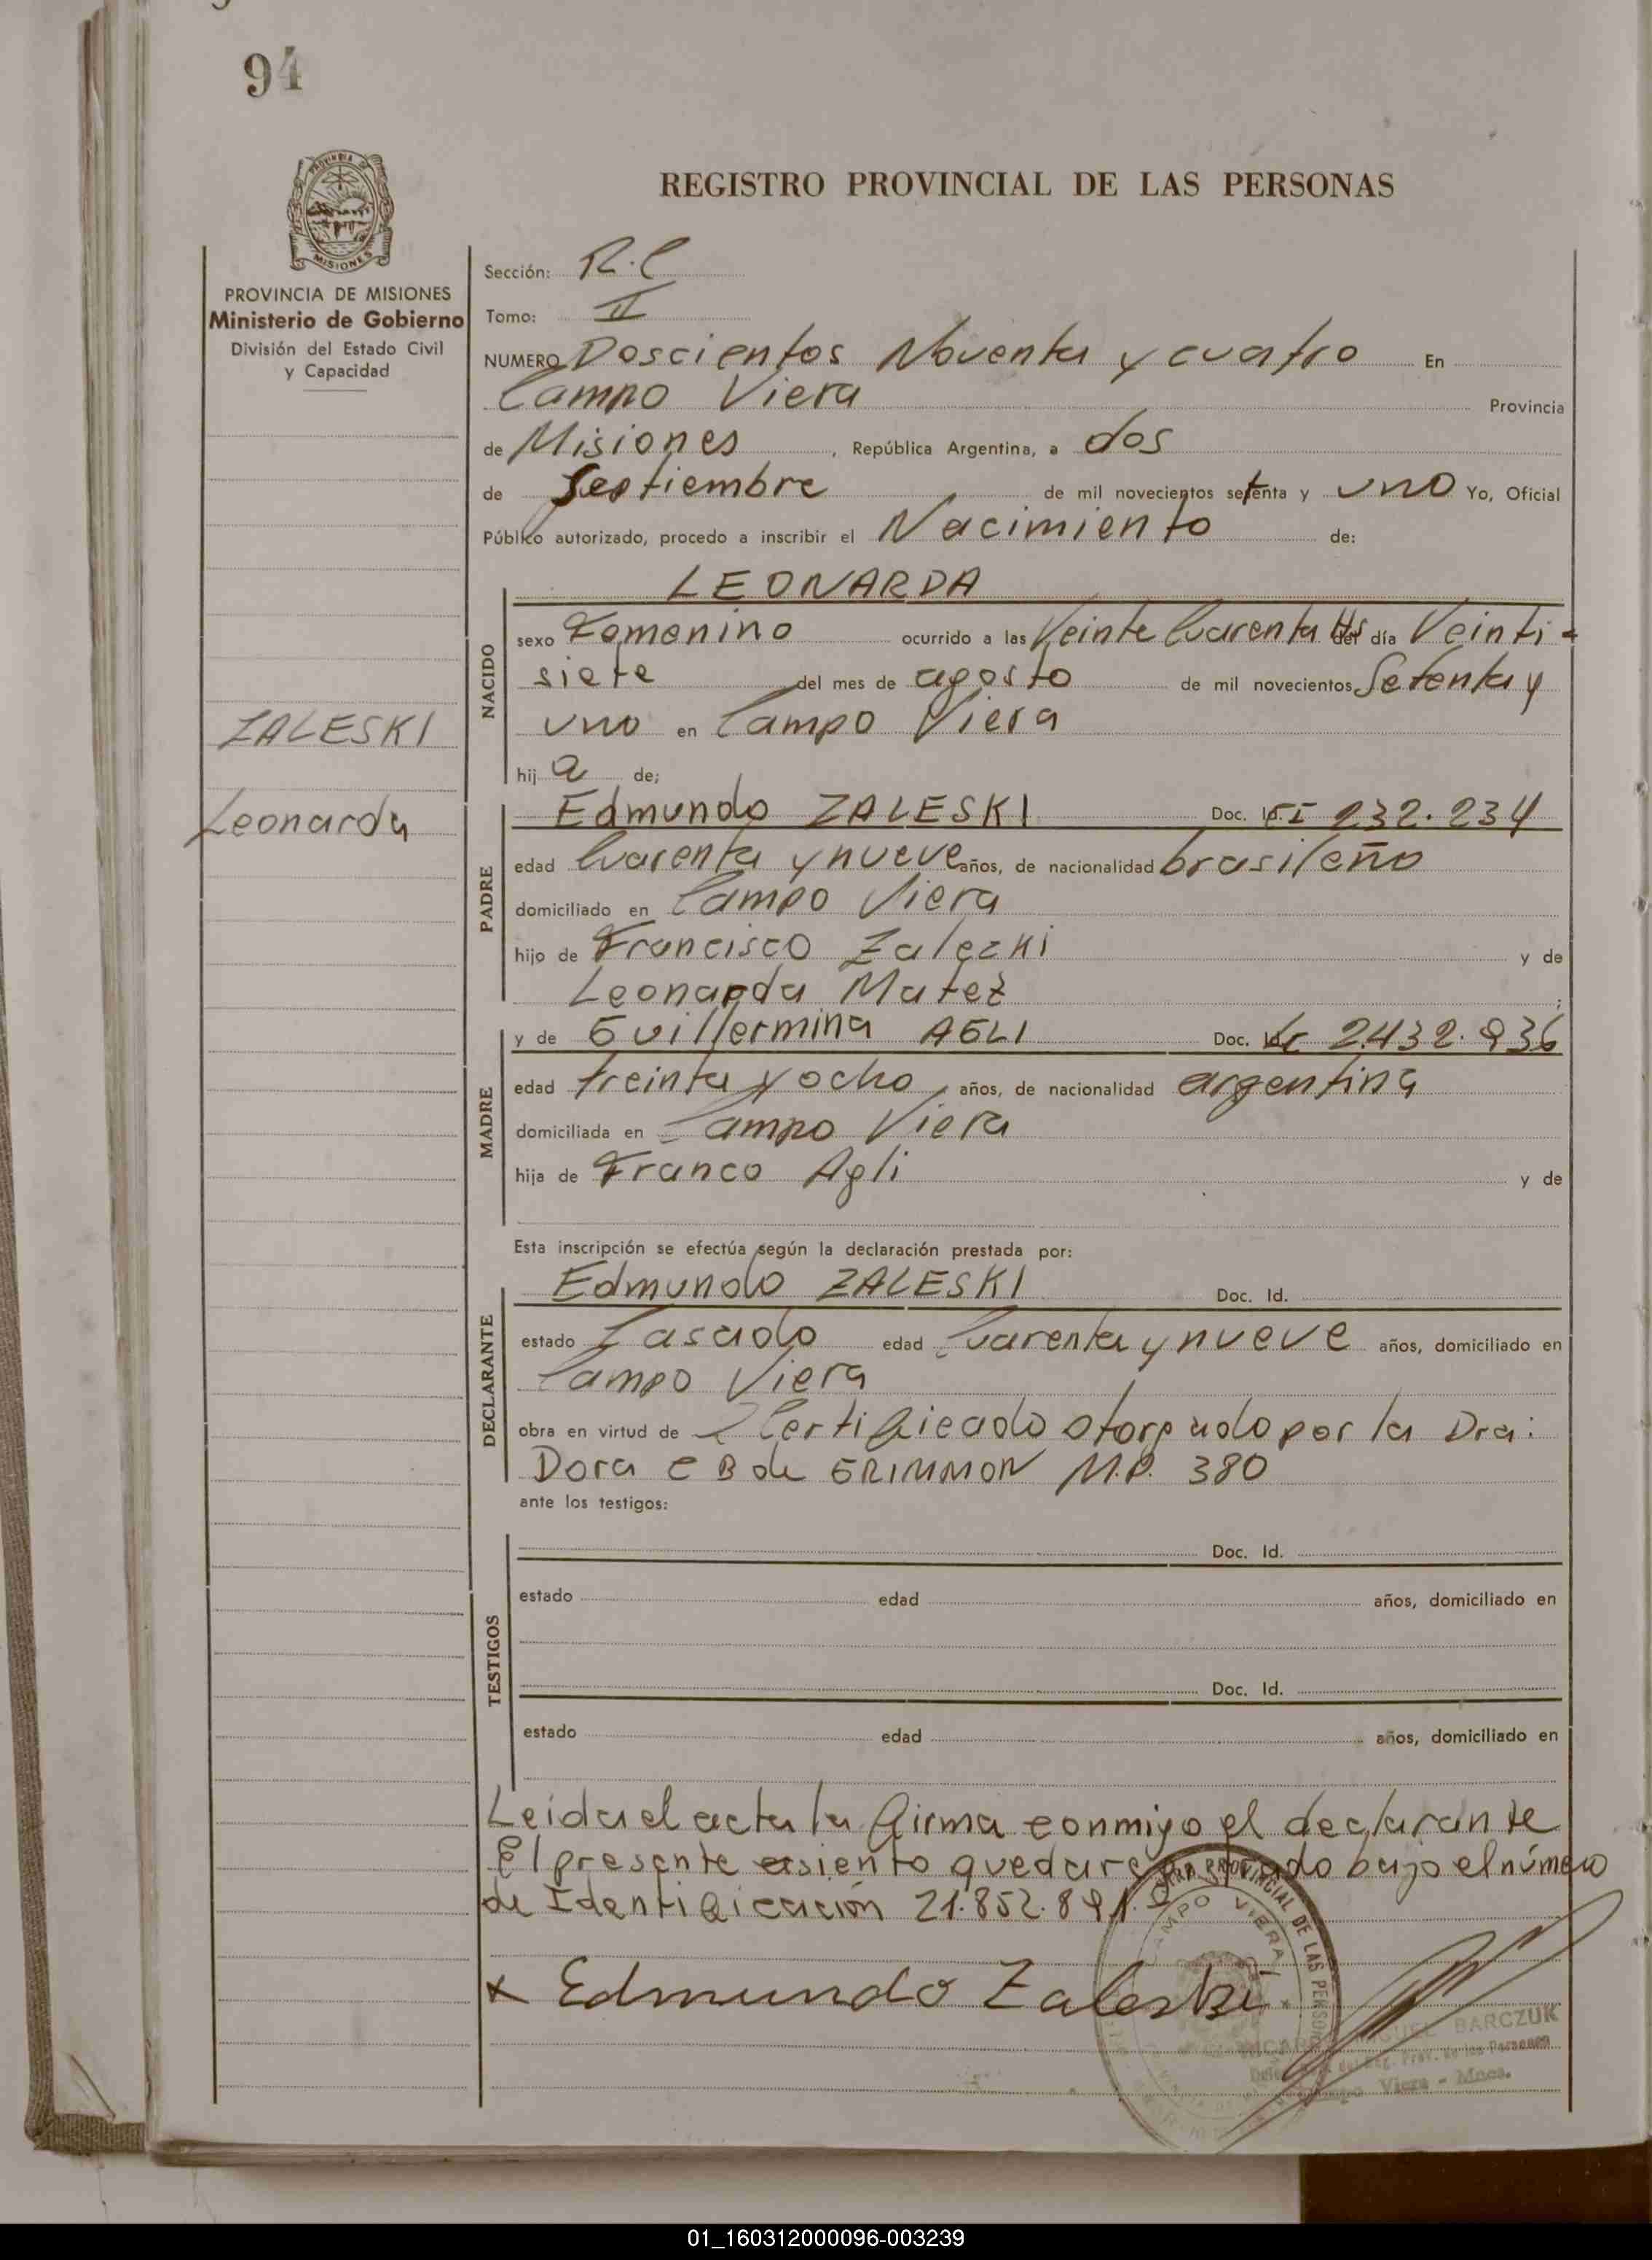 94
REGISTRO PROVINCIAL DE LAS PERSONAS
PROVINCIA DE MISIONES
Ministerio de Gobierno
División del Estado Civil
y Capacidad
ZALESKI
Leonarda
Sección: R.C
Tomo: II
NUMERO Doscientos Noventa y cuatro En
Campo Viera Provincia
de Misiones, República Argentina, a dos
de Septiembre de mil novecientos setenta y uno Yo, Oficial
Público autorizado, procedo a inscribir el Nacimiento de:
NACIDO
LEONARDA
sexo Femenino ocurrido a las Veinte Cuarenta Hs del día Veinti-
siete del mes de agosto de mil novecientos Setenta y
uno en Campo Viera
hij a de;
PADRE
Edmundo ZALESKI Doc. Id. CI 232.234
edad Cuarenta y nueve años, de nacionalidad brasileño
domiciliado en Campo Viera
hijo de Francisco Zalezki y de
Leonarda Matez;
MADRE
y de Guillermina AGLI Doc. Id. Lc 2.432.936
edad treinta y ocho años, de nacionalidad argentina
domiciliada en Campo Viera
hija de Franco Agli y de
Esta inscripción se efectúa según la declaración prestada por:
DECLARANTE
Edmundo ZALESKI Doc. Id.
estado Casado edad Cuarenta y nueve años, domiciliado en
Campo Viera
obra en virtud de Certificado otorgado por la Dra:
Dora C B de GRIMMON M.P. 380
ante los testigos:
TESTIGOS
Doc. Id.
estado edad años, domiciliado en
Doc. Id.
estado edad años, domiciliado en
Leida el acta la firma conmigo el declarante
El presente asiento quedara bajo el número
de Identificación 21.852.891.
x Edmundo Zaleski
CAMPO VIERA
PROVINCIAL DE LAS PERSONAS
MIGUEL BARCZUK
Reg. Prov. de las Personas
Campo Viera - Mnes.
01_160312000096-003239